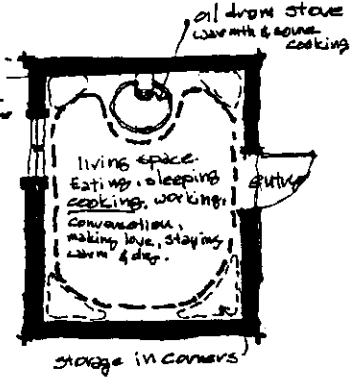 oil drum stove
warmth & some
cooking
living space.
Eating, sleeping
cooking, working.
conversation,
making love, staying
warm & dry.
entry
storage in corners